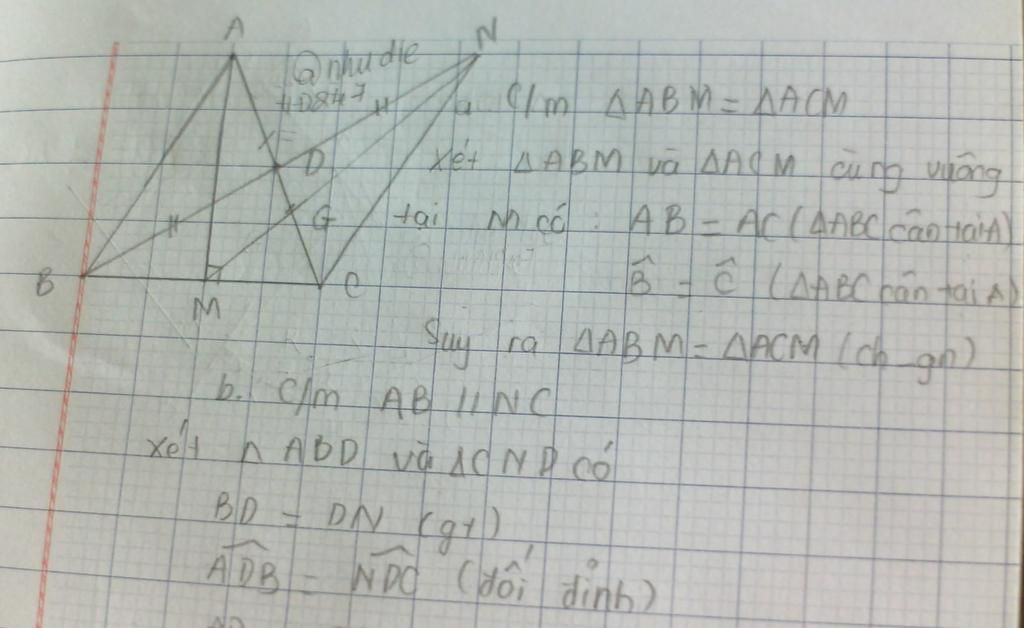 A
N
@nhudie
D
G
B
M
C
a C/m ΔABM = ΔACM
xét ΔABM và ΔACM cùng vuông
tại M có : AB = AC (ΔABC cân tại A)
B̂ = Ĉ (ΔABC cân tại A)
Suy ra ΔABM = ΔACM (ch_gn)
b. C/m AB // NC
xét Δ ABD và ΔCND có
BD = DN (gt)
ADB = NDC (đối đỉnh)